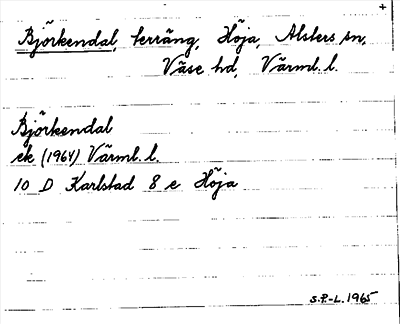 +
Björkendal, terräng, Höja, Alsters sn,
Väse hd, Värml. l.
Björkendal
ek (1964) Värml. l.
10 D Karlstad 8 e Höja
S.P.-L. 1965